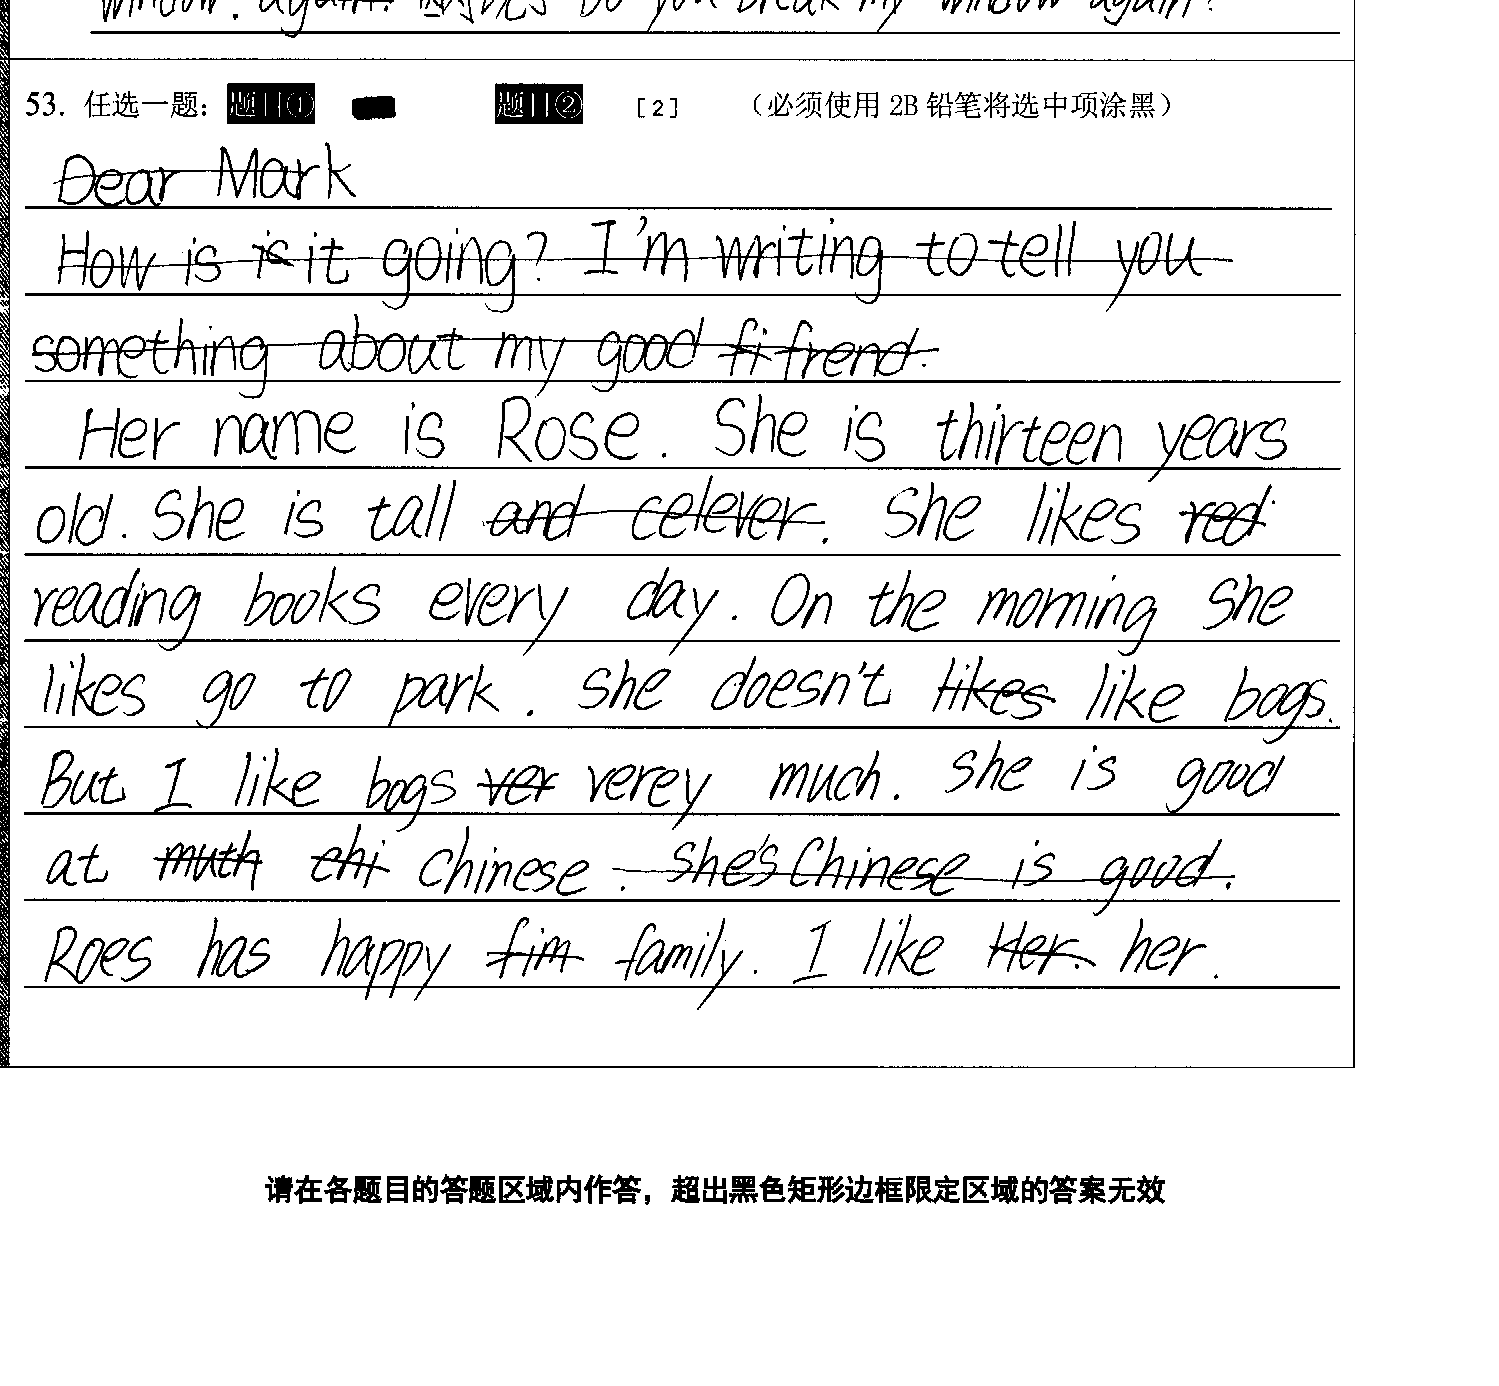 window. again. Do you break my window again?
53. 任选一题: 题目① 题目② [2] (必须使用 2B 铅笔将选中项涂黑)
Dear Mark
How is is it going? I'm writing to tell you
something about my good fi frend.
Her name is Rose. She is thirteen years
old. She is tall and celever. She likes red
reading books every day. On the morning she
likes go to park. She doesn't likes like bogs.
But I like bogs ver verey much. She is good
at muth chi Chinese. She's Chinese is good.
Roes has happy fim family. I like Her. her.
请在各题目的答题区域内作答，超出黑色矩形边框限定区域的答案无效